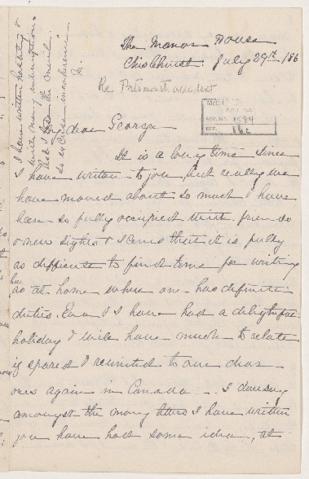 The Manor House
Chislehurst July 29th 186
Re Portsmouth
dear George
It is a long time since
I have written to you but really we
have moved about so much & have
been so fully occupied with friends
& new sights & scenes that it is fully
as difficult to find time for writing
as at home when one has definite
duties. Eva & I have had a delightful
holiday & will have much to relate
if spared & reunited to our dear
ones again in Canada - . I daresay
amongst the many letters I have written
you have had some idea, at
I have written hastily &
with many interruptions